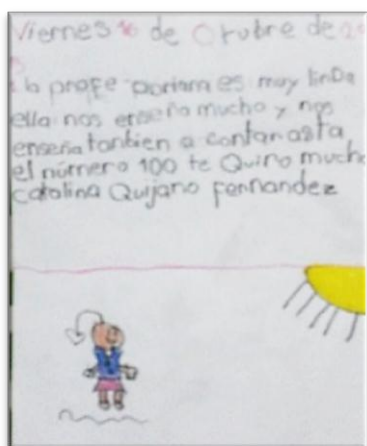 Viernes 16 de Octubre de 20
la profe es muy linDa
ella nos enseña mucho y nos
enseña tantien a contar asta
el número 100 te Quiro mucho
catalina Quijano fernandez